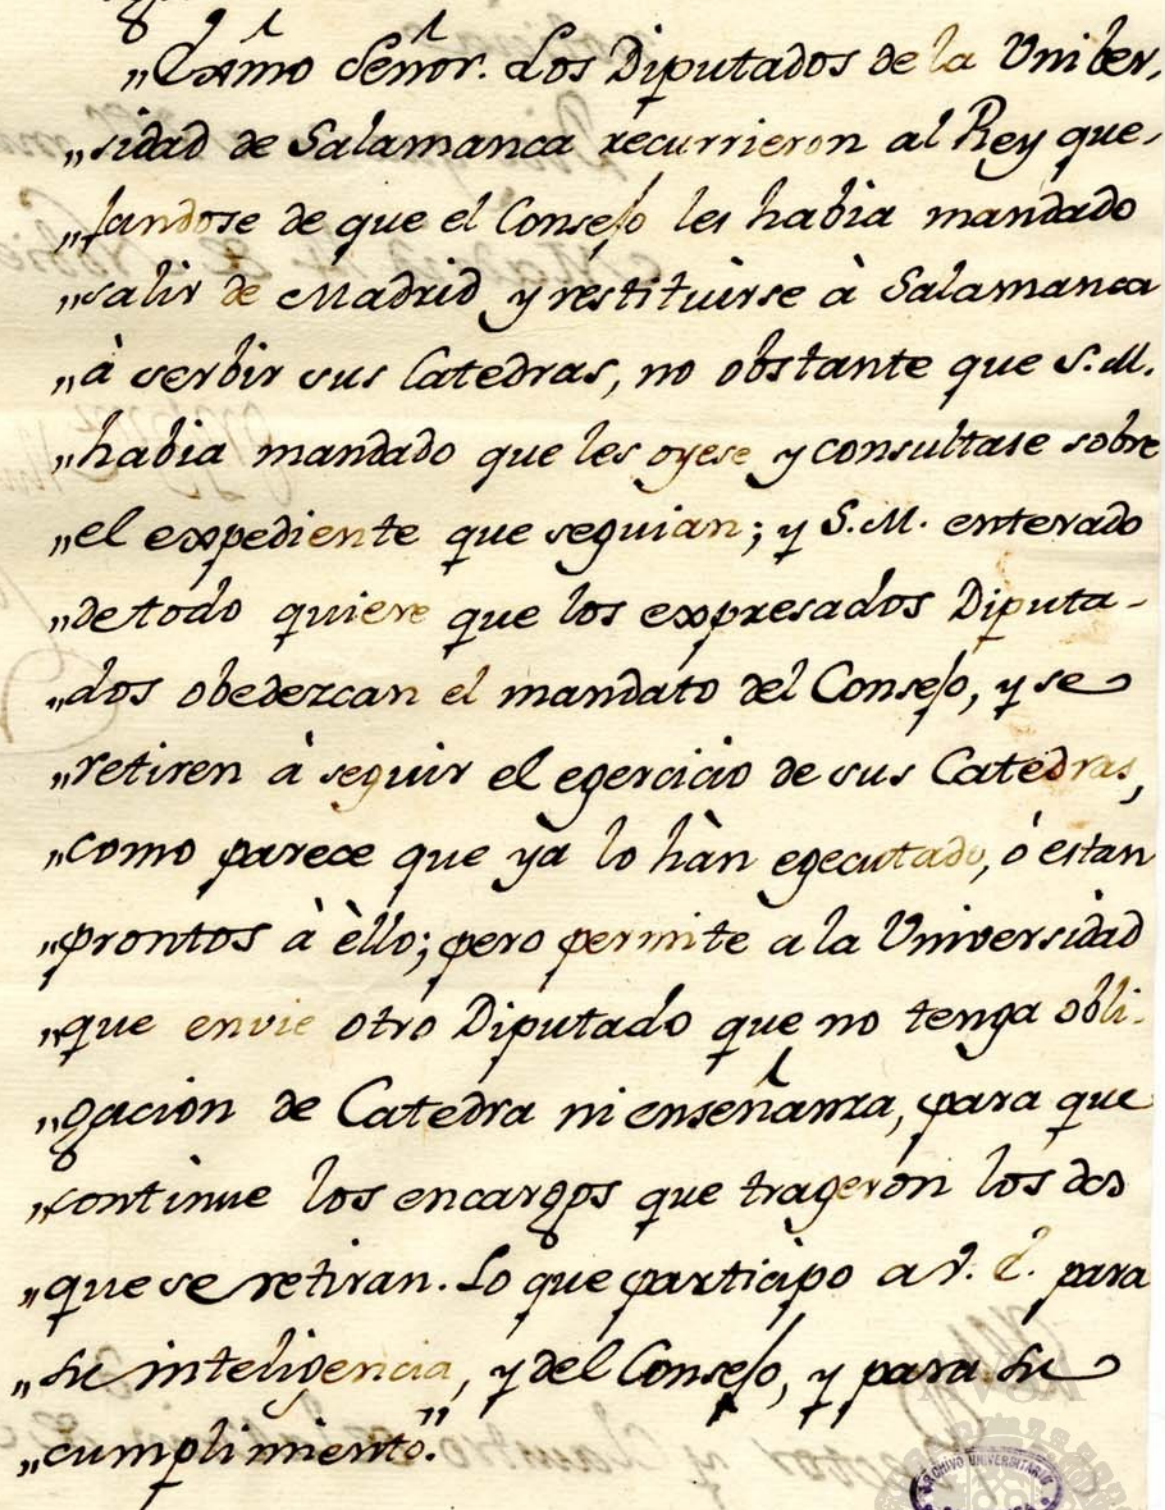 „Exmo Señor. Los Diputados de la Uniber,
„sidad de Salamanca recurrieron al Rey que,
„jandose de que el Consejo les habia mandado
„salir de Madrid y restituirse à Salamanca
„à serbir sus Catedras, no obstante que S.M.
„habia mandado que les oyese y consultase sobre
„el expediente que seguian; y S.M. enterado
„de todo quiere que los expresados Diputa-
„dos obedezcan el mandato del Consejo, y se
„retiren à seguir el egercicio de sus Catedras,
„como parece que ya lo hàn egecutado, ó estan
„prontos à èllo; pero permite a la Universidad
„que envie otro Diputado que no tenga obli-
„gacion de Catedra ni enseñanza, para que
„continue los encargos que trageron los dos
„que se retiran. Lo que participo a V. E. para
„su inteligencia, y del Consejo, y para su
„cumplimiento."
ARCHIVO UNIVERSITARIO